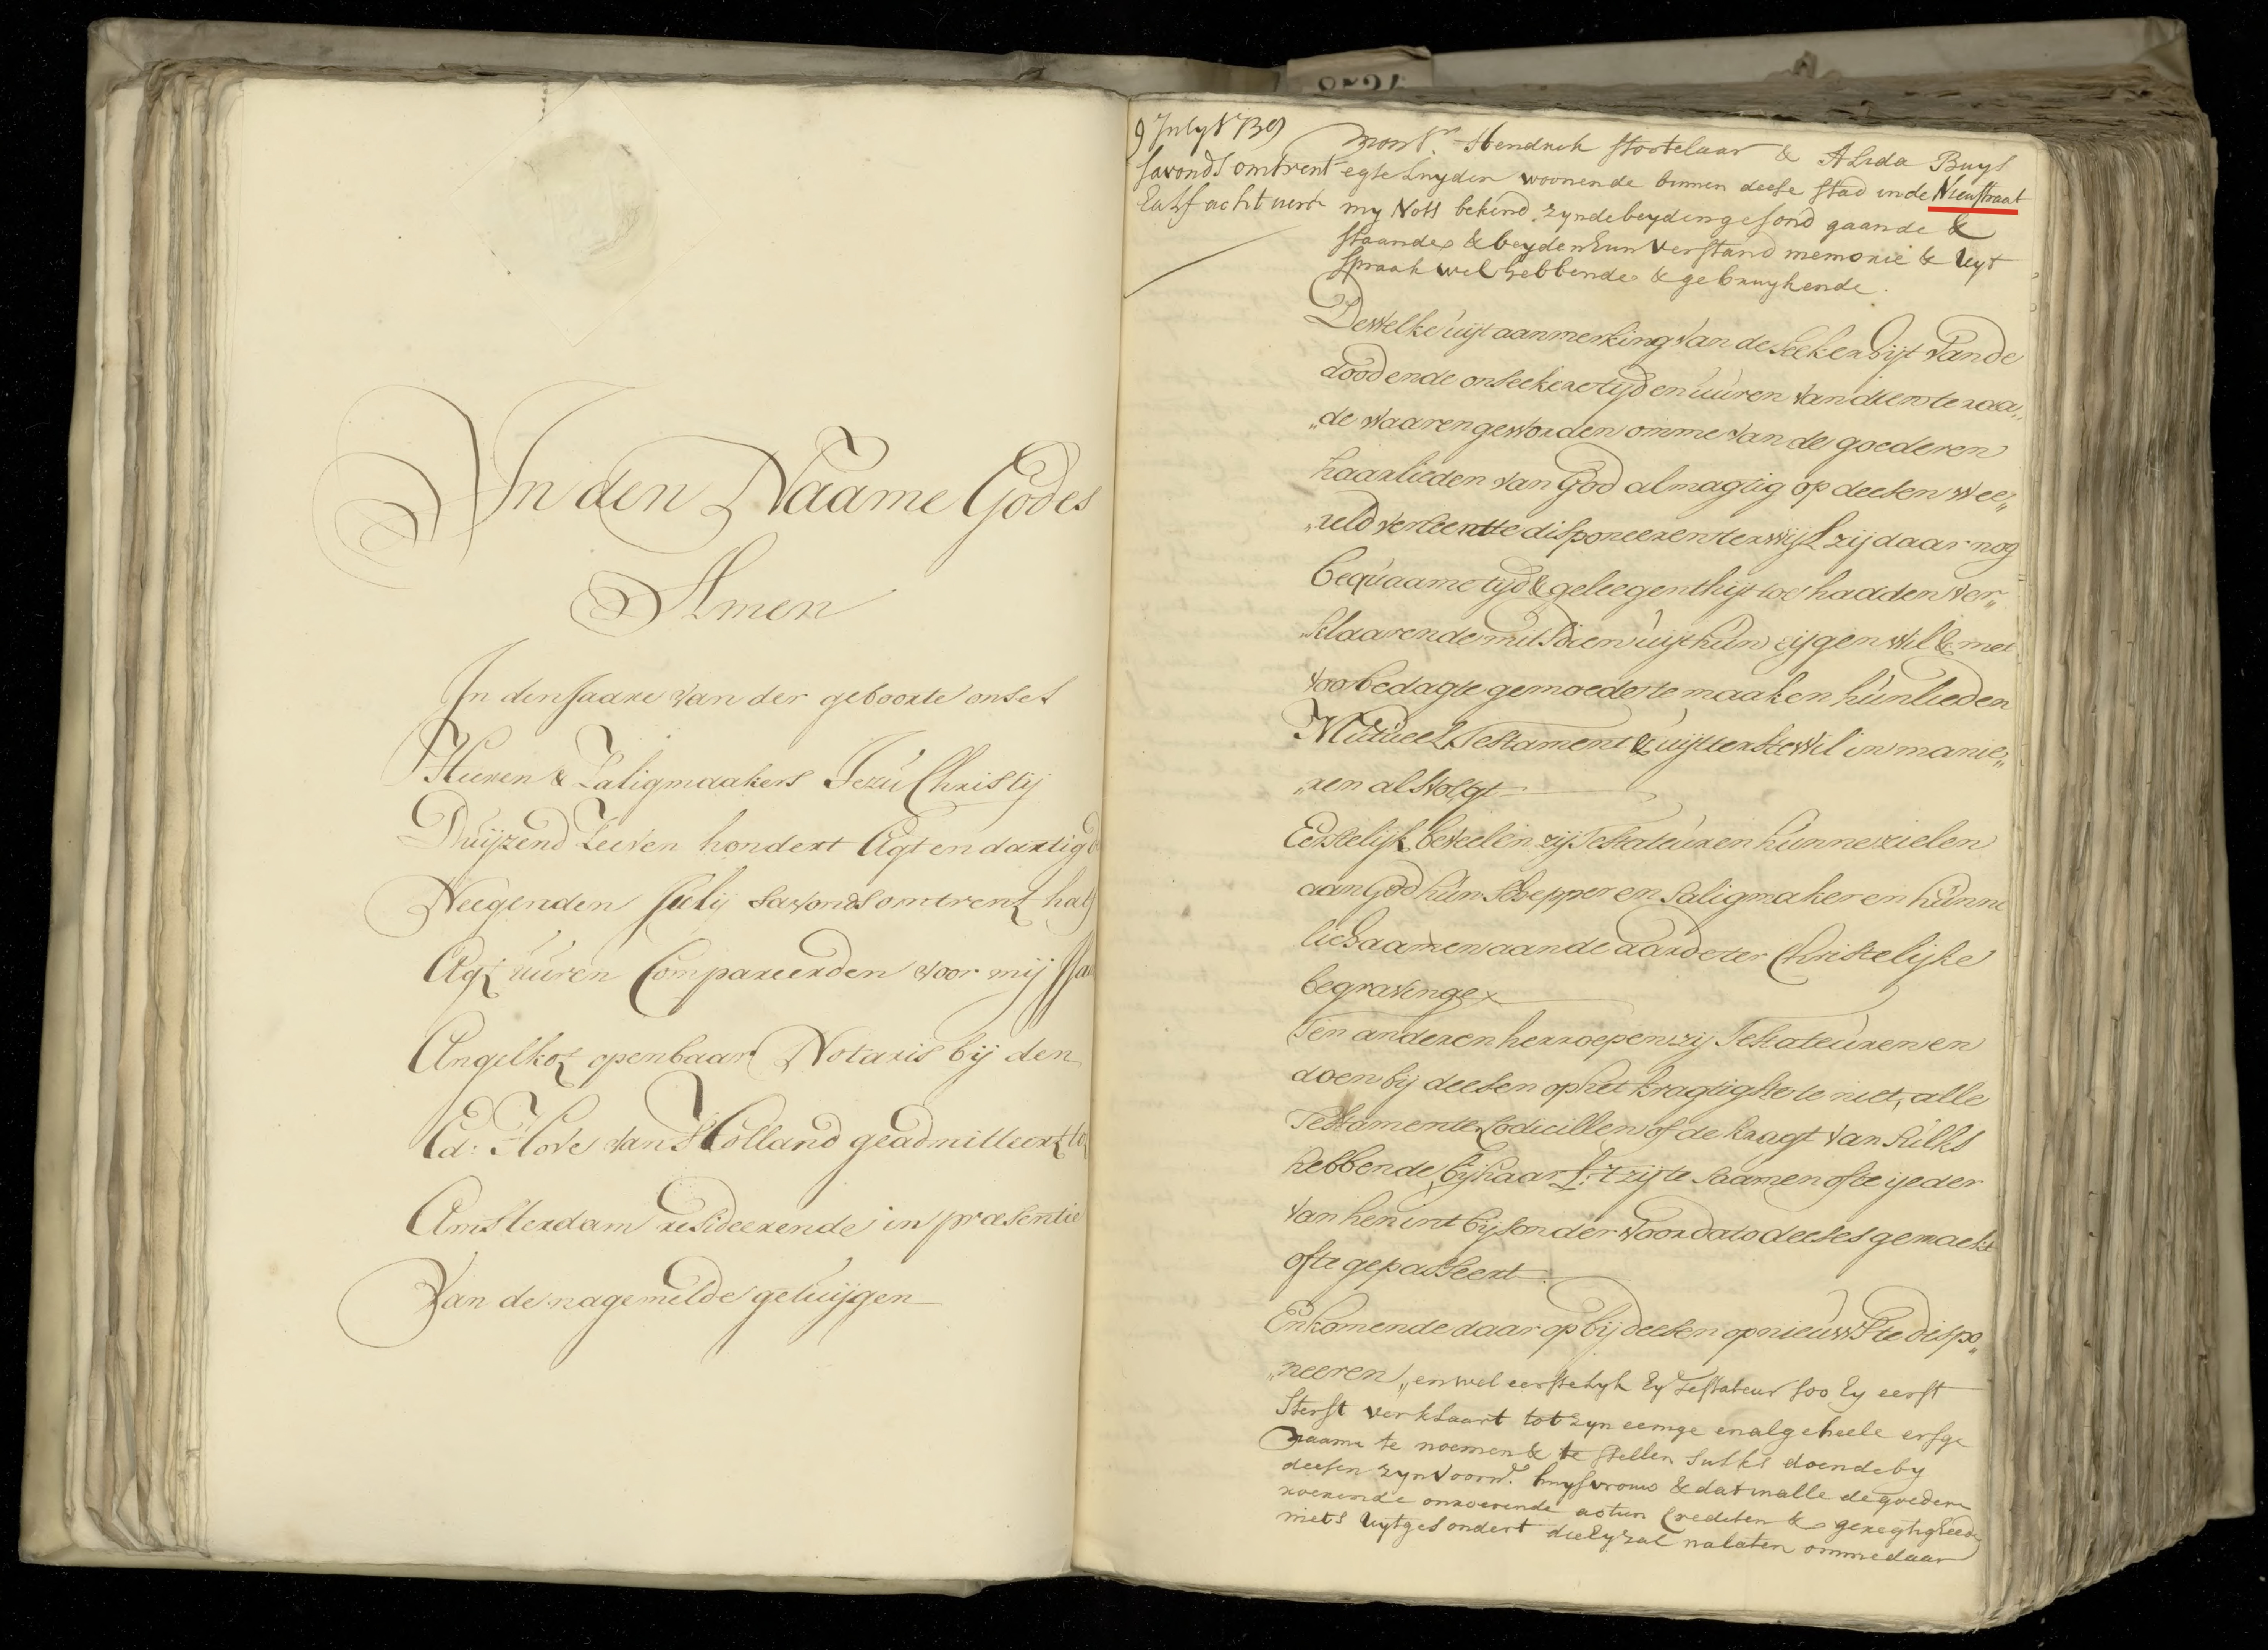 In den Naame Godes
Amen
In den Jaare van der geboorte onses
Heeren & Zaligmaakers Jezu Christij
Duijzend Zeeven hondert Agt en dartig
Neegenden Julij savonds omtrent half
Agt uuren Compareerden voor mij
Angelkot openbaar Notaris bij den
Ed: Hove van Holland geadmitteert
Amsterdam resideerende in præsentie
Van de nagemelde getuijgen
9 July 1739
savonds omtrent
half acht uure
Monsr. Hendrick Stootelaar & Alida Buys
egte Luyden woonende binnen deese stad in de Nieustraat
my Nots bekend. zynde beyden gesond gaande &
staande & beyden hun verstand memorie & Uyt
spraak wel hebbende & gebruykende.
Dewelke uijt aanmerking van de seekerhijt van de
dood ende onseekere tijd en uuren van dien te raa„
„de waaren geworden omme van de goederen
haarlieden van God almagtig op deesen wee„
„reld verleent te disponeeren terwijl zij daar nog
bequaame tijd & geleegenthijt toe hadden ver„
klaarende mitsdien uijt hun eijgen wil & met
voorbedagte gemoede te maaken hunlieden
Mutueel Testament & uijtterste wil in manie„
„ren als volgt
Eerstelijk beveelen zij Testateuren hunne zielen
aan God hun Schepper en Saligmaker en hunne
lichaamen aan de aarde ter Christelijke
begravinge
Ten anderen herroepen zij Testateuren en
doen bij deesen op het kragtigste te niet, alle
Testamente Codicillen of de kragt van sulks
hebbende, bij haar L: 't zij te saamen ofte ijeder
van hen int bijsonder voor dato deeses gemaakt
ofte gepasseert.
En komende daar op bij deesen op nieuws te dispo„
„neeren „en wel eerstelyk hy Testateur soo hy eerst
sterft verklaart tot zyn eenige en algeheele erfge
naame te noemen & te stellen sulks doende by
deesen zyn voornd. huysvrouw & dat in alle de goedere
roerende onroerende actien Credieten & geregtigheede
niets uytgesondert die hy zal nalaten omme daar